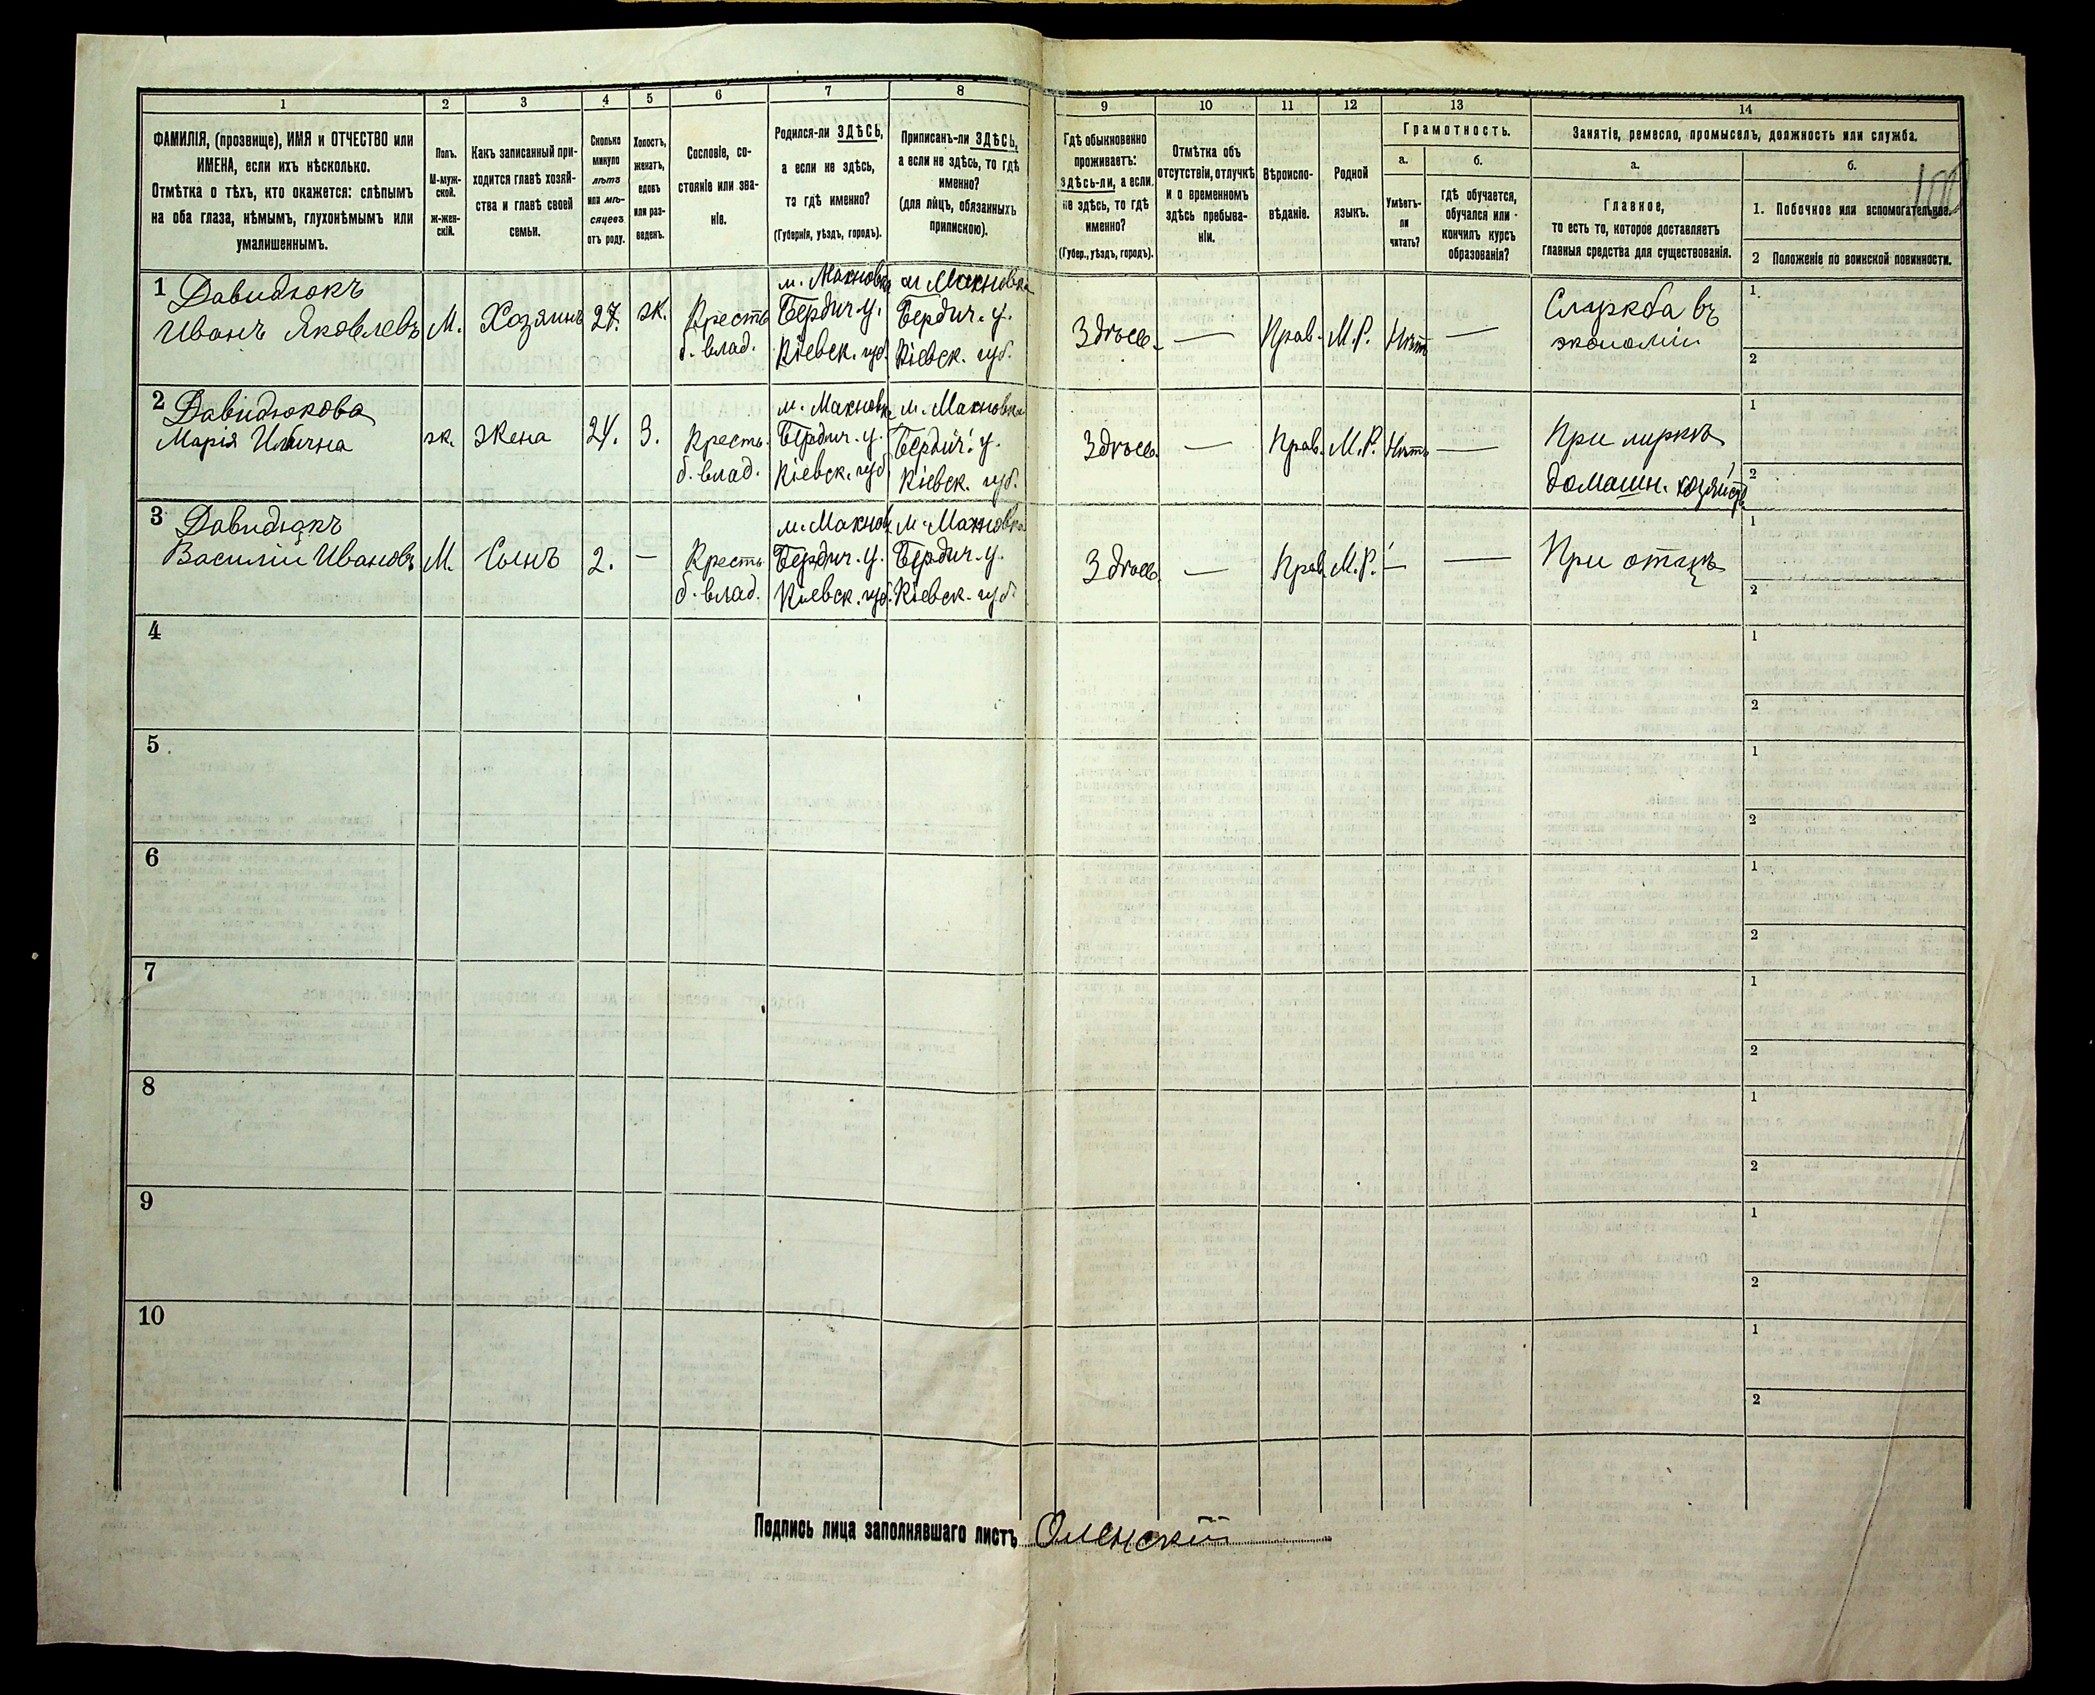 1 2 3 4 5 6 7 8 9 10 11 12 13 14
ФАМИЛІЯ, (прозвище), ИМЯ и ОТЧЕСТВО или
ИМЕНА, если ихъ нѣсколько.
Отмѣтка о тѣхъ, кто окажется: слѣпымъ
на оба глаза, нѣмымъ, глухонѣмымъ или
умалишеннымъ.
Полъ.
М-муж-
ской.
ж-жен-
скій.
Какъ записанный при-
ходится главѣ хозяй-
ства и главѣ своей
семьи.
Сколько
минуло
лѣтъ
или мѣ-
сяцевъ
отъ роду.
Холостъ,
женатъ,
вдовъ
или раз-
веденъ.
Сословіе, со-
стояніе или зва-
ніе.
Родился-ли ЗДѢСЬ,
а если не здѣсь,
то гдѣ именно?
(Губернія, уѣздъ, городъ).
Приписанъ-ли ЗДѢСЬ,
а если не здѣсь, то гдѣ
именно?
(для лицъ, обязанныхъ
припискою).
Гдѣ обыкновенно
проживаетъ:
здѣсь-ли, а если
не здѣсь, то гдѣ
именно?
(Губер., уѣздъ, городъ).
Отмѣтка объ
отсутствіи, отлучкѣ
и о временномъ
здѣсь пребыва-
ніи.
Вѣроиспо-
вѣданіе.
Родной
языкъ.
Грамотность.
а.
Умѣетъ-
ли
читать?
б.
гдѣ обучается,
обучался или
кончилъ курсъ
образованія?
Занятіе, ремесло, промыселъ, должность или служба.
а.
Главное,
то есть то, которое доставляетъ
главныя средства для существованія.
б.
1. Побочное или вспомогательное.
2 Положеніе по воинской повинности.
100
1 Давидюкъ
Иванъ Яковлевъ
М.
Хозяинъ
27.
ж.
Кресть
б. влад.
м. Махновка
Бердич. у.
Кіевск. губ.
м. Махновка
Бердич. у.
Кіевск. губ.
Здѣсь.
—
Прав.
М.Р.
Нѣтъ
—
Служба въ
экономіи
1.
2
2 Давидюкова
Марія Ильична
ж.
Жена
24.
З.
Кресть.
б. влад.
м. Махновка
Бердич. у.
Кіевск. губ
м. Махновка
Бердич. у.
Кіевск. губ.
Здѣсь.
—
Прав.
М.Р.
Нѣтъ
—
При мужѣ
домашн. хозяйств
1
2
3 Давидюкъ
Василій Ивановъ
М.
Сынъ
2.
—
Кресть
б. влад.
м. Махнов
Бердич. у.
Кіевск. губ.
м. Махновка
Бердич. у.
Кіевск. губ.
Здѣсь.
—
Прав
М.Р.
—
—
При отцѣ
1
2
4
1
2
5
1
2
6
1
2
7
1
2
8
1
2
9
1
2
10
1
2
Подпись лица заполнявшаго листъ